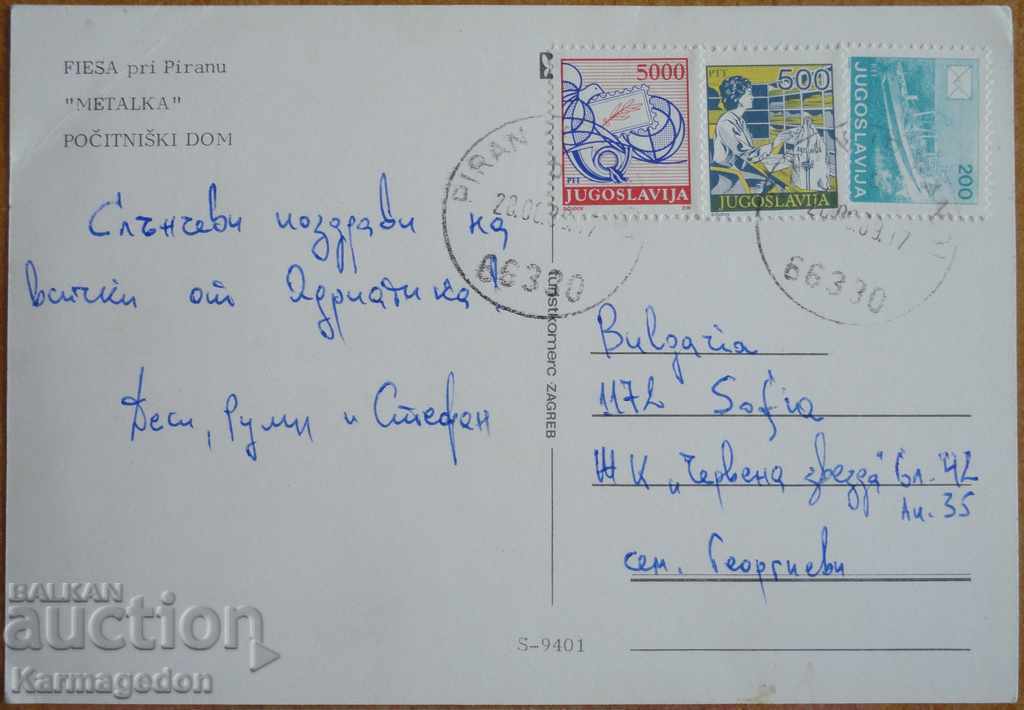 FIESA pri Piranu
"METALKA"
POČITNIŠKI DOM
Слънчеви поздрави на
всички от Адриатика!
Деси, Руми и Стефан
5000
PTT
JUGOSLAVIJA
PTT
500
JUGOSLAVIJA
PTT
JUGOSLAVIJA
200
PIRAN
66330
66330
turistkomerc - ZAGREB
Bulgaria
1172 Sofia
ЖК „Червена звезда" бл. 42
Ап. 35
сем. Георгиеви
S-9401
BALKAN
auction
Karmagedon